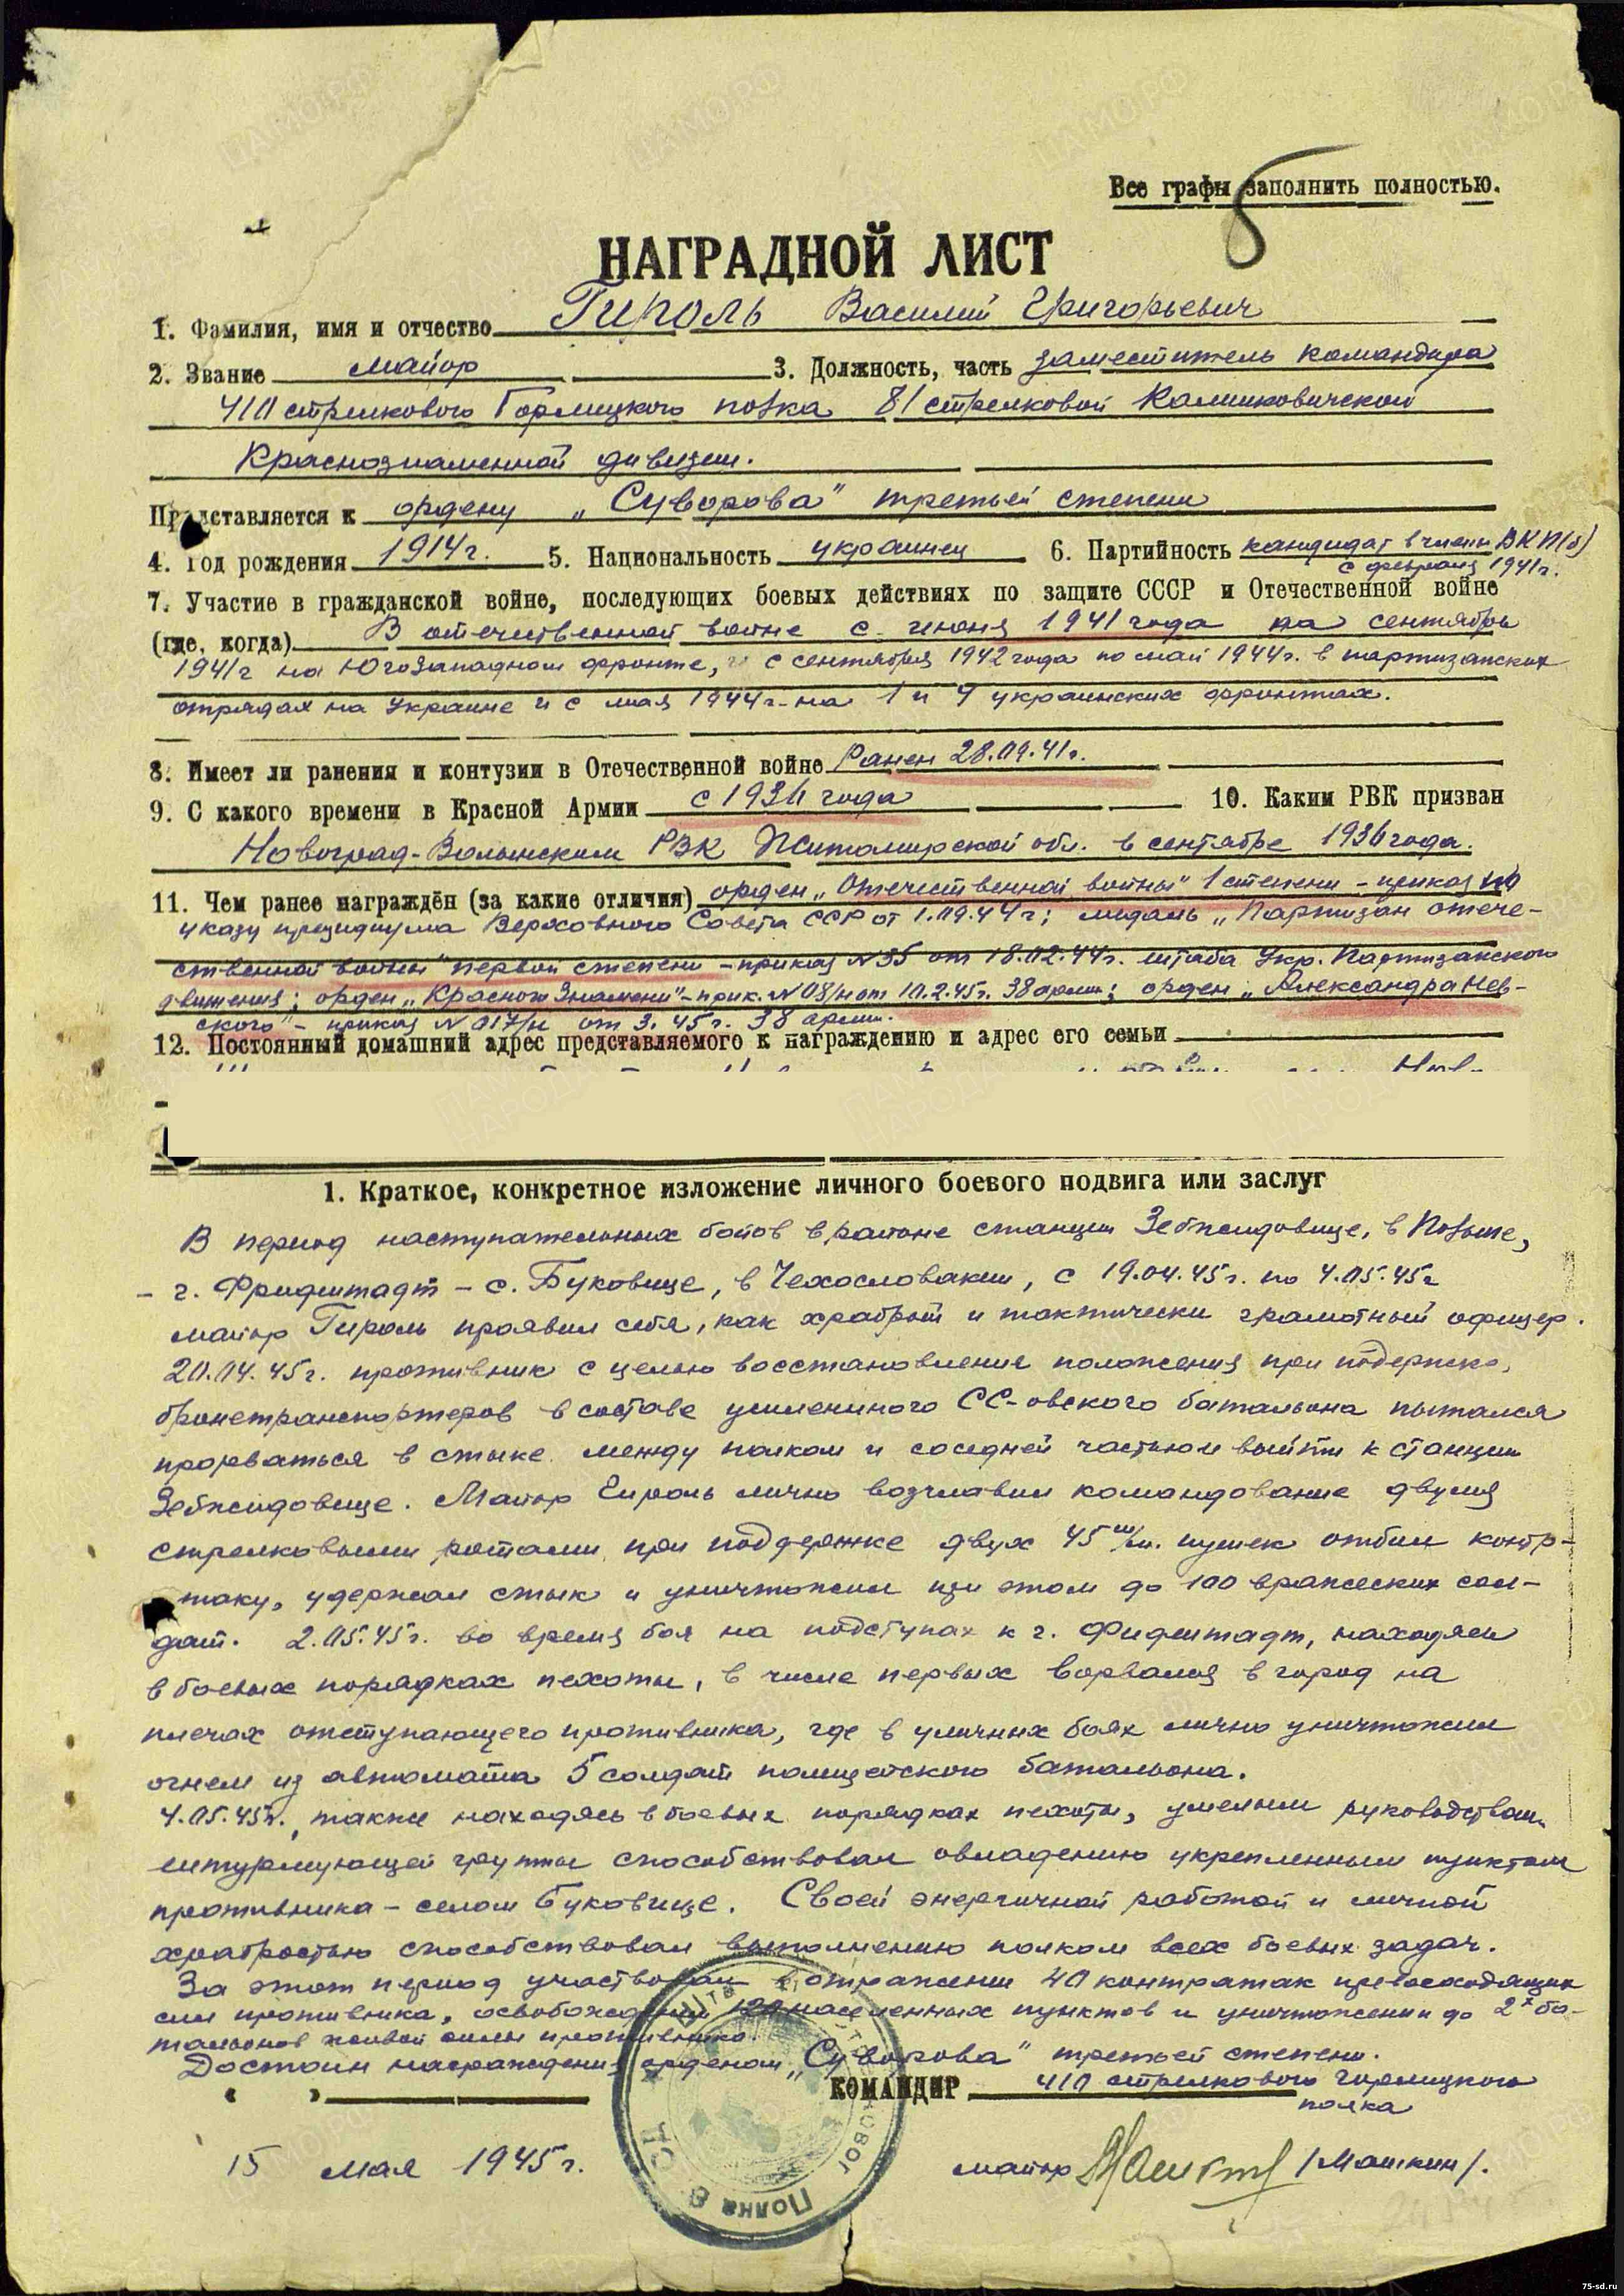 Все графы заполнить полностью.
НАГРАДНОЙ ЛИСТ
1. Фамилия, имя и отчество Гироль Василий Григорьевич
2. Звание майор 3. Должность, часть заместитель командира
410 стрелкового Горлицкого полка 81 стрелковой Калинковичской
Краснознаменной дивизии.
Представляется к ордену „Суворова" третьей степени
4. Год рождения 1914г. 5. Национальность украинец 6. Партийность кандидат в члены ВКП(б)
с февраля 1941г.
7. Участие в гражданской войне, последующих боевых действиях по защите СССР и Отечественной войне
(где, когда) В отечественной войне с июня 1941 года по сентябрь
1941г на Югозападном фронте, с сентября 1942 года по май 1944г. в партизанских
отрядах на Украине и с мая 1944г. на 1 и 4 украинских фронтах.
8. Имеет ли ранения и контузии в Отечественной войне Ранен 28.09.41г.
9. С какого времени в Красной Армии с 1936 года 10. Каким РВК призван
Новоград-Волынским РВК Житомирской обл. в сентябре 1936 года.
11. Чем ранее награждён (за какие отличия) орден „Отечественной войны" 1 степени - приказ по
указу президиума Верховного Совета СССР от 1.09.44г; медаль „Партизан отече-
ственной войны" первой степени - приказ №35 от 18.02.44г. штаба Укр. Партизанского
движения; орден „Красного Знамени" - прик. № 08/н от 10.2.45г. 38 армии; орден „Александра Нев-
ского" - приказ № 017/н от 3. 45г. 38 армии.
12. Постоянный домашний адрес представляемого к награждению и адрес его семьи
1. Краткое, конкретное изложение личного боевого подвига или заслуг
В период наступательных боев в районе станции Зебжидовице, в Польше,
- г. Фридштадт - с. Буковице, в Чехословакии, с 19.04.45г. по 4.05.45г
майор Гироль проявил себя, как храбрый и тактически грамотный офицер.
20.04.45г. противник с целью восстановления положения при подержке,
бронетранспортеров в составе усиленного СС-овского батальона пытался
прорваться в стыке между полком и соседней частью и выйти к станции
Зебжидовице. Майор Гироль лично возглавил командование двумя
стрелковыми ротами при поддержке двух 45 м/м. пушек отбил контр-
таку, удержал стык и уничтожил при этом до 100 вражеских сол-
дат. 2.05.45г. во время боя на подступах к г. Фидштадт, находясь
в боевых порядках пехоты, в числе первых ворвался в город на
плечах отступающего противника, где в уличных боях лично уничтожил
огнем из автомата 5 солдат полицейского батальона.
4.05.45г., также находясь в боевых порядках пехоты, умелым руководством
штурмующей группы способствовал овладению укрепленным пунктом
противника - селом Буковице. Своей энергичной работой и личной
храбростью способствовал выполнению полком всех боевых задач.
За этот период участвовал в отражении 40 контратак превосходящих
сил противника, освобождении населенных пунктов и уничтожении до 2х ба-
тальонов живой силы противника.
Достоин награждения орденом „Суворова" третьей степени.
КОМАНДИР 410 стрелкового Горлицкого
полка
15 мая 1945г. майор /Машкин/.
75-sd.ru